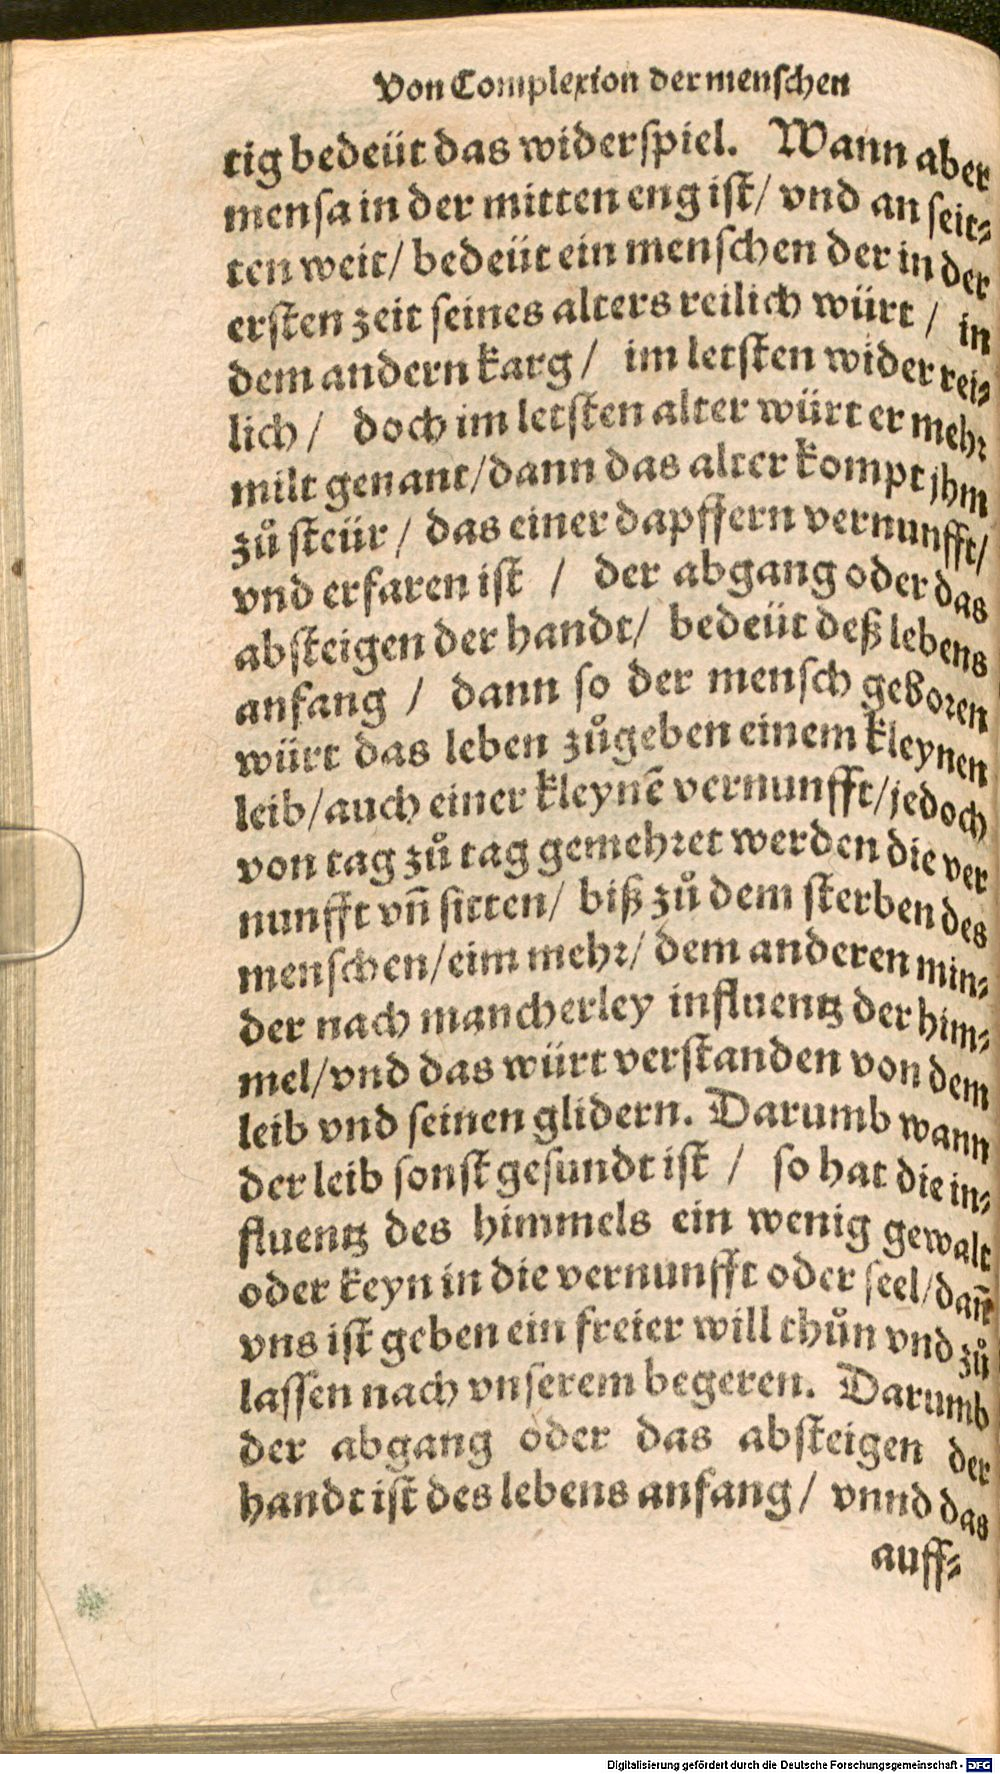 Von Complexion der menschen
tig bedeüt das widerspiel. Wann aber
mensa in der mitten eng ist/ vnd an seit⸗
ten weit/ bedeüt ein menschen der in der
ersten zeit seines alters reilich würt / in
dem andern karg / im letsten wider rei⸗
lich / doch im letsten alter würt er mehr
milt genant/dann das alter kompt jhm
zů steür / das einer dapffern vernunfft/
vnd erfaren ist / der abgang oder das
absteigen der handt/ bedeüt deß lebens
anfang / dann so der mensch geboren
würt das leben zůgeben einem kleynen
leib/auch einer kleynẽ vernunfft/jedoch
von tag zů tag gemehret werden die ver
nunfft vñ sitten/ biß zů dem sterben des
menschen/eim mehr/ dem anderen min⸗
der nach mancherley influentz der him⸗
mel/vnd das würt verstanden von dem
leib vnd seinen glidern. Darumb wann
der leib sonst gesundt ist / so hat die in⸗
fluentz des himmels ein wenig gewalt
oder keyn in die vernunfft oder seel/dañ
vns ist geben ein freier will thůn vnd zů
lassen nach vnserem begeren. Darumb
der abgang oder das absteigen der
handt ist des lebens anfang/ vnnd das
auff⸗
Digitalisierung gefördert durch die Deutsche Forschungsgemeinschaft - DFG